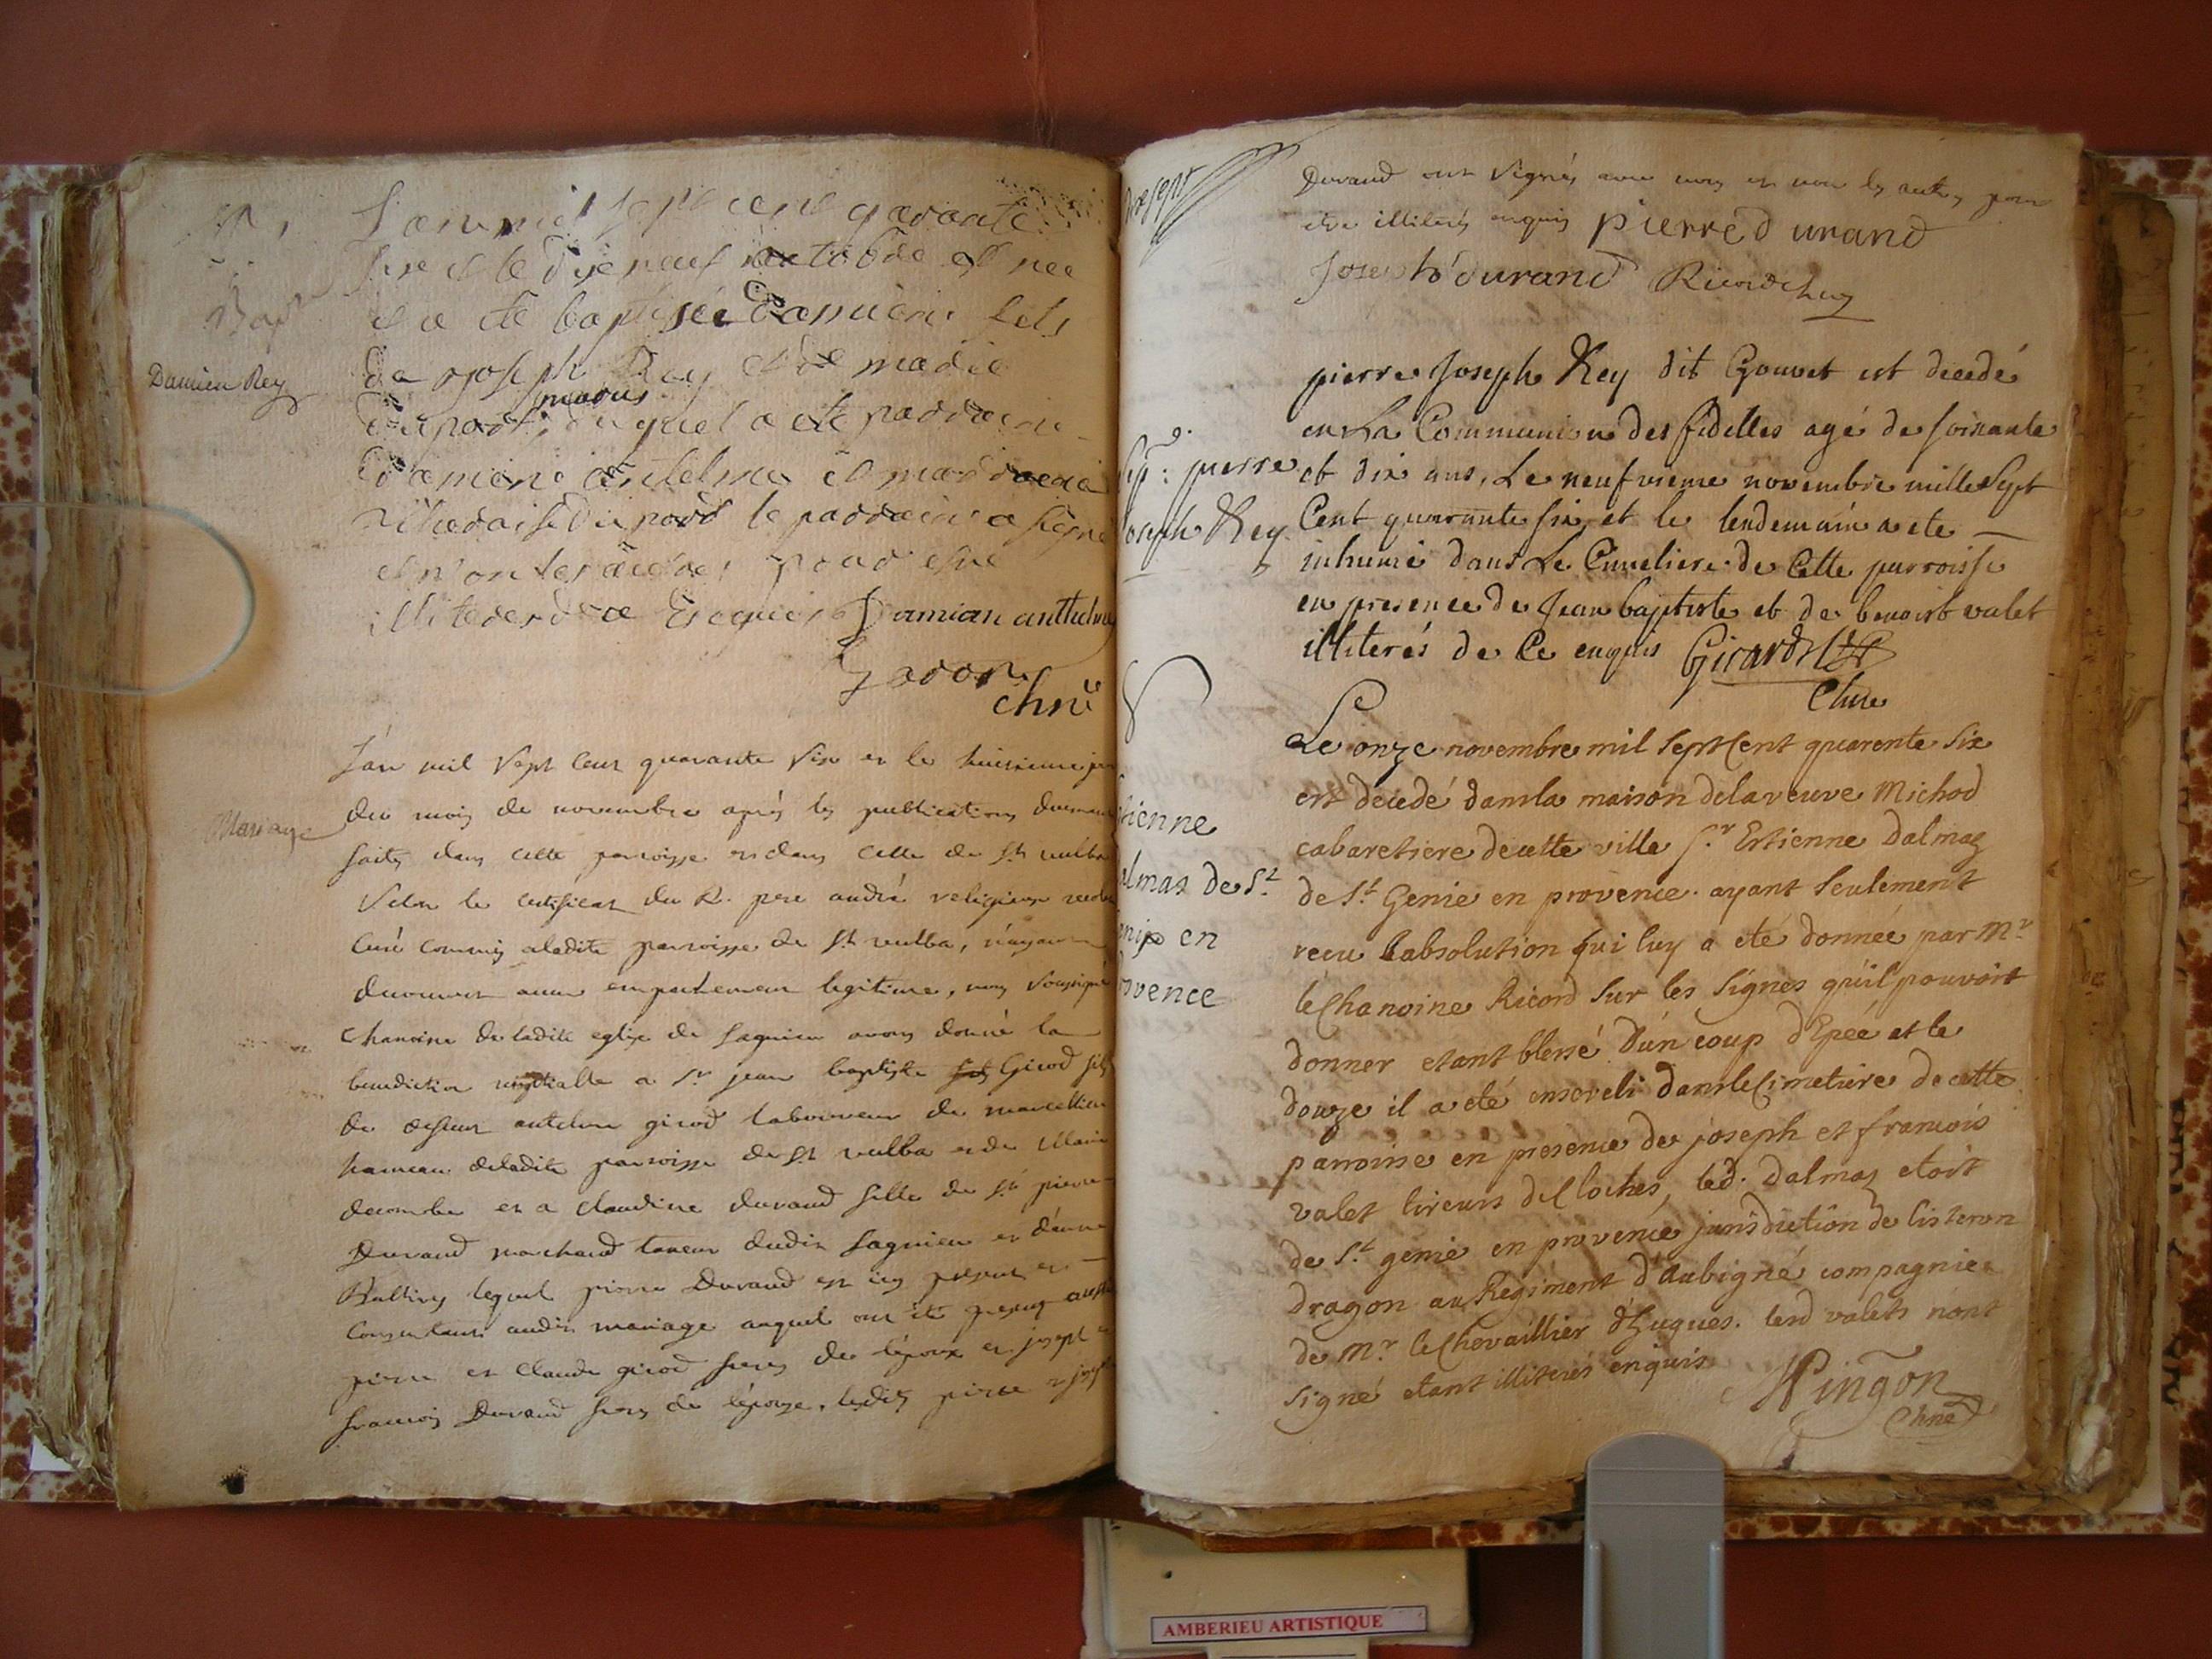 L'an mil sept cent quarante
sixe et le dix neuf octobre est nee
Bap
et a ete baptisee Damiene fels
Damien Rey
de joseph Rey et de marie
marus
du port, duquel a ete parraine
Damiene antelme et marraine
du port le parrain a signé
et non les autres pour estre
illiteres de ce enquis Damian anthelme
chne
L'an mil sept cent quarante six et le huitieme jour
Mariage
du mois de novembre après les publications duement
faites dans cette parroisse et dans celle de st vulba
selon le certificat du R. pere andré religieux
curé commis a ladite parroisse de st vulba, n'ayant
decouvert aucun empechement legitime, nous soussigné
chanoine de ladite eglise de lagnieu avons donné la
benediction nuptialle a sr jean baptiste Girod fils
de defunt antelme girod laboureur de marcillieu
hameau de ladite parroisse de st vulba et de Marie
decombe et a claudine durand fille de sr pierre
Durand marchand taneur dudit lagnieu et d'anne
lequel pierre Durand est icy present et
consentant audit mariage auquel ont été presens aussi
pierre et claude girod freres de l'époux et joseph et
francois Durand freres de l'épouse, lesdits pierre et joseph
Durand ont signés avec nous et non les autres pour
etre illiterés enquis pierre Durand
Joseph durand Ricord chne
pierre Joseph Rey dit Gouvet est decedé
en La Communion des fidelles agé de soixante
Sep: pierre
et dix ans, Le neufvieme novembre mille Sept
joseph Rey
Cent quarante six et le lendemain a ete
inhumé dans Le Cimetiere de Cette parroisse
en presence de Jean baptiste et de benoist valet
illiterés de Ce enquis Girard
Chne
Le onze novembre mil sept Cent quarente six
est décedé dans la maison de la veuve Michod
tienne
cabaretiere de cette ville sr Estienne Dalmas
almas de St
de St Genie en provence. ayant seulement
enix en
recu l'absolution qui luy a eté donnée par Mr
ovence
le Chanoine Ricord sur les signes qu'il pouvoit
donner etant blessé d'un coup d'Epée et le
douze il a eté enseveli dans le Cimetiere de cette
parroisse en presence de joseph et francois
valet tireurs de Cloches, led. dalmas etoit
de St genie en provence jurisdiction de sisteron
dragon au Regiment d'Aubigné compagnie
de Mr le Chevaillier d'hugues. lesd valets n'ont
signé etant illiterés enquis Pingon
Chne
AMBERIEU ARTISTIQUE